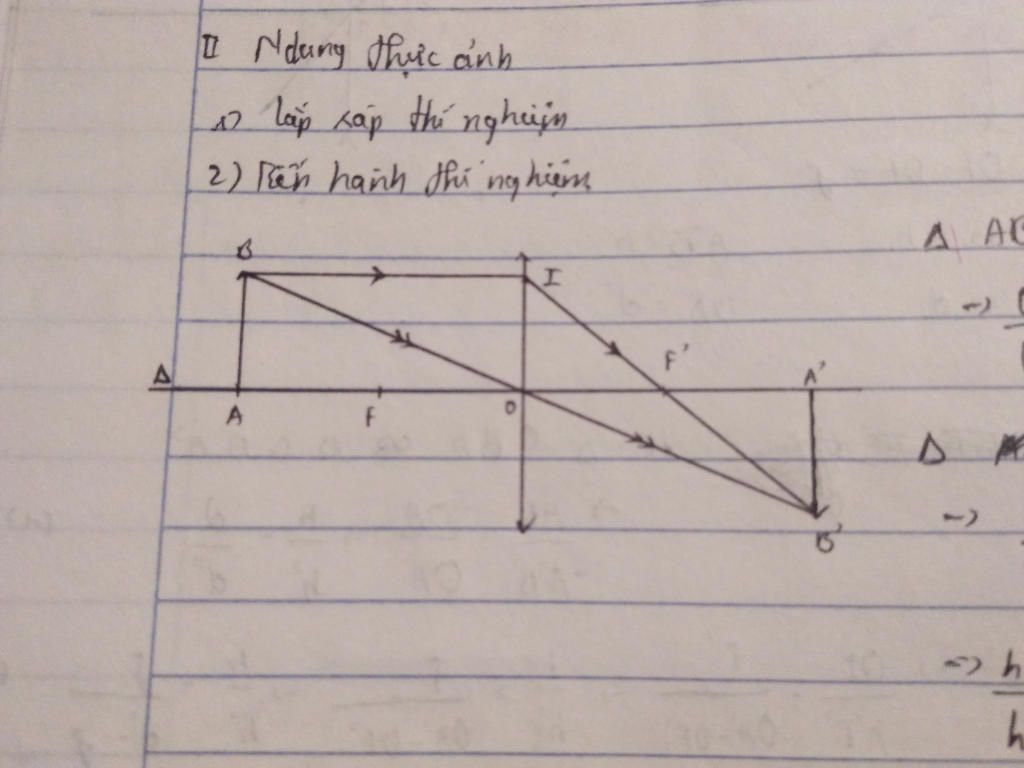 II Ndung thực ảnh
1) lắp ráp thí nghiệm
2) Tiến hành thí nghiệm
Δ AB
B I
-> 
F' A'
Δ A F O
Δ
->
B'
=> h
h